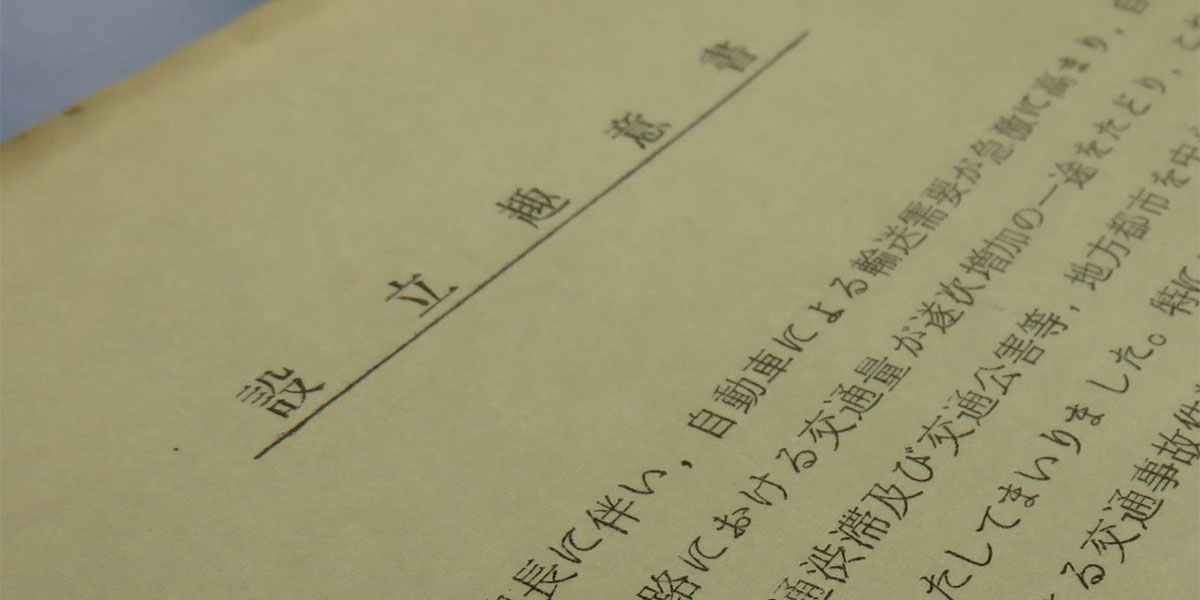 設立趣意書
長に伴い，自動車による輸送需要が急激に高まり，自
路における交通量が逐次増加の一途をたどり，
通渋滞及び交通公害等，地方都市を中
たしてまいりました。特に
る交通事故件